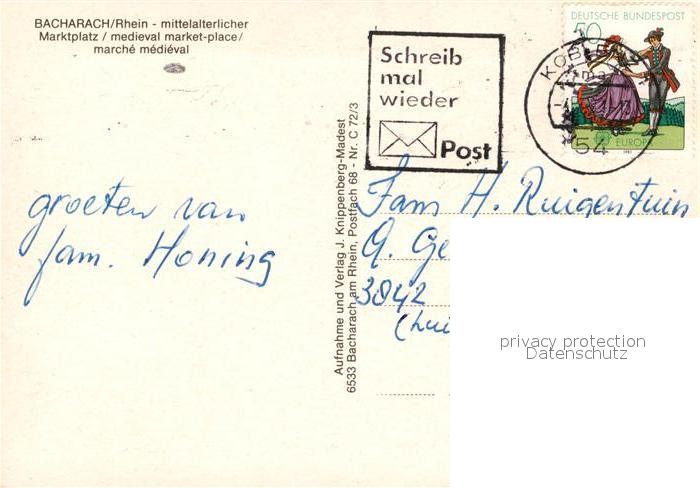 BACHARACH/Rhein - mittelalterlicher
Marktplatz / medieval market-place/
marché médiéval
groeten van
fam. Honing
Aufnahme und Verlag J. Knippenberg-Madest
6533 Bacharach am Rhein, Postfach 68 - Nr. C 72/3
Schreib
mal
wieder
Post
DEUTSCHE BUNDESPOST
50
KOBLENZ
54
EUROPA
Fam H. Ruigentuin
A. Ge
3842
privacy protection
Datenschutz